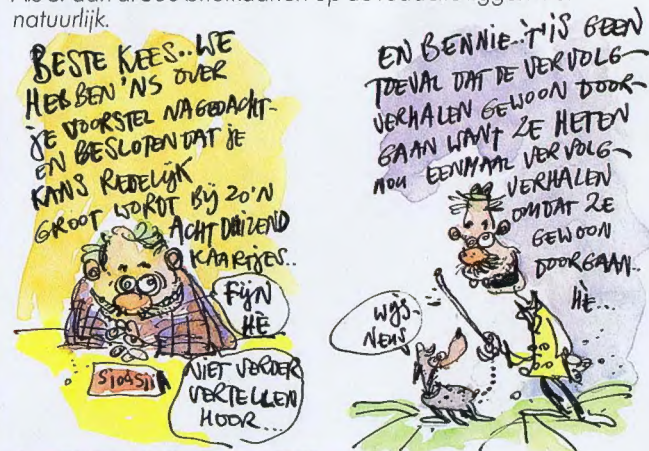 natuurlijk.
BESTE KEES..WE
HEBBEN 'NS OVER
JE VOORSTEL NAGEDACHT-
EN BESLOTEN DAT JE
KANS REDELIJK
GROOT WORDT BIJ ZO'N
ACHT DUIZEND
KAARTJES..
FIJN
HÈ
NIET VERDER
VERTELLEN
HOOR...
EN BENNIE..'T IS GEEN
TOEVAL DAT DE VERVOLG-
VERHALEN GEWOON DOOR-
GAAN WANT ZE HETEN
NOU EENMAAL VERVOLG-
VERHALEN
OMDAT ZE
GEWOON
DOORGAAN..
HÈ...
WIJS-
NEUS